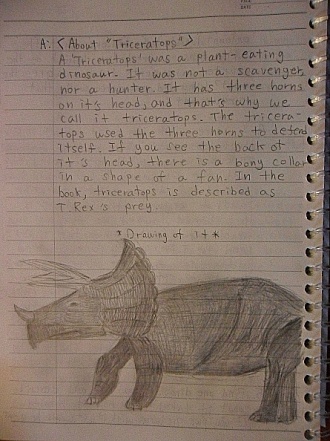 A: < About "Triceratops" >
A 'Triceratops' was a plant-eating
dinosaur. It was not a scavenger
nor a hunter. It has three horns
on it's head, and that's why we
call it triceratops. The tricera-
tops used the three horns to defend
itself. If you see the back of
it's head, there is a bony collar
in a shape of a fan. In the
book, triceratops is described as
T Rex's prey.
* Drawing of it *